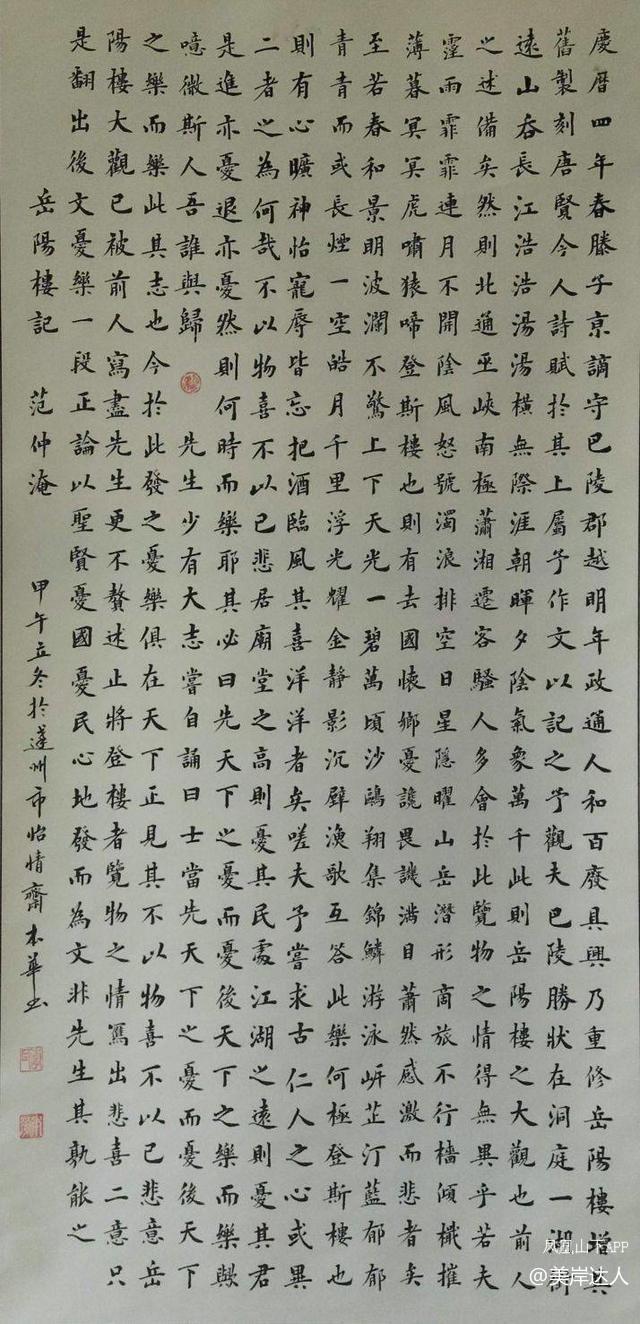 慶曆四年春滕子京謫守巴陵郡越明年政通人和百廢具興乃重修岳陽樓增其
舊製刻唐賢今人詩賦於其上屬予作文以記之予觀夫巴陵勝狀在洞庭一湖銜
遠山吞長江浩浩湯湯橫無際涯朝暉夕陰氣象萬千此則岳陽樓之大觀也前人
之述備矣然則北通巫峽南極瀟湘遷客騷人多會於此覽物之情得無異乎若夫
霪雨霏霏連月不開陰風怒號濁浪排空日星隱曜山岳潛形商旅不行檣傾檝摧
薄暮冥冥虎嘯猿啼登斯樓也則有去國懷鄉憂讒畏譏滿目蕭然感激而悲者矣
至若春和景明波瀾不驚上下天光一碧萬頃沙鷗翔集錦鱗游泳岍芷汀藍郁郁
青青而或長煙一空皓月千里浮光耀金靜影沉璧漁歌互答此樂何極登斯樓也
則有心曠神怡寵辱皆忘把酒臨風其喜洋洋者矣嗟夫予嘗求古仁人之心或異
二者之為何哉不以物喜不以己悲居廟堂之高則憂其民處江湖之遠則憂其君
是進亦憂退亦憂然則何時而樂耶其必曰先天下之憂而憂後天下之樂而樂歟
噫微斯人吾誰與歸 先生少有大志嘗自誦曰士當先天下之憂而憂後天下
之樂而樂此其志也今於此發之憂樂俱在天下正見其不以物喜不以己悲意岳
陽樓大觀已被前人寫盡先生更不贅述止將登樓者覽物之情寫出悲喜二意只
是翻出後文憂樂一段正論以聖賢憂國憂民心地發而為文非先生其孰能之
岳陽樓記 范仲淹 甲午立冬於蓬州市怡情齋木華书
山下APP
@美岸达人